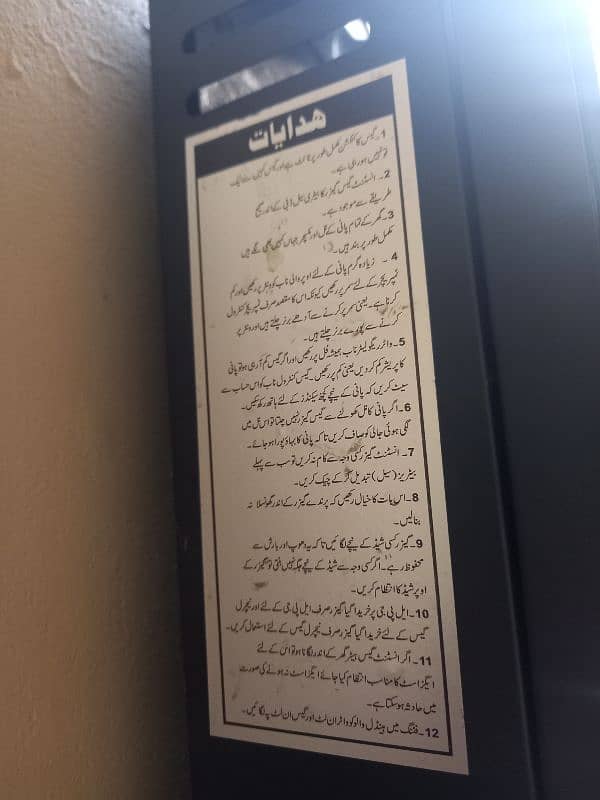 ھدایات
1۔ گیس کا کنکشن مکمل طور پر ٹائٹ ہے اور گیس کہیں سے لیک
تو نہیں ہو رہی ہے۔
2۔ انسٹنٹ گیس گیزر کا بیٹری سیل ڈبی کے اندر صحیح
طریقے سے موجود ہے۔
3۔ گھر کے تمام پانی کے نل اور مکسچر جہاں کہیں بھی لگے ہیں
مکمل طور پر بند ہیں۔
4۔ زیادہ گرم پانی کے لئے اوپر والی ناب کو ونٹر پر رکھیں اور کم
ٹمپریچر کے لئے سمر پر رکھیں کیونکہ اس کا مقصد صرف ٹمپریچر کنٹرول
کرنا ہے۔ یعنی سمر پر کرنے سے آدھے برنر چلتے ہیں اور ونٹر پر
کرنے سے پورے برنر چلتے ہیں۔
5۔ واٹر ریگولیٹر ناب ہمیشہ فل پر رکھیں اور اگر گیس کم آ رہی ہو تو پانی
کا پریشر کم کر دیں یعنی کم پر رکھیں۔ گیس کنٹرول ناب کو اس حساب سے
سیٹ کریں کہ پانی کے نیچے کچھ سیکنڈز کے لئے ہاتھ رکھ سکیں۔
6۔ اگر پانی کا نل کھولنے سے گیس گیزر نہیں چلتا تو اس نل میں
لگی ہوئی جالی کو صاف کریں تاکہ پانی کا بہاؤ پورا ہو جائے۔
7۔ انسٹنٹ گیزر کسی وجہ سے کام نہ کریں تو سب سے پہلے
بیٹریز (سیل) تبدیل کر کے چیک کریں۔
8۔ اس بات کا خیال رکھیں کہ پرندے گیزر کے اندر گھونسلا نہ
بنالیں۔
9۔ گیزر کسی شیڈ کے نیچے لگائیں تاکہ یہ دھوپ اور بارش سے
محفوظ رہے۔ اگر کسی وجہ سے شیڈ کے نیچے جگہ نہیں ملتی تو گیزر کے
اوپر شیڈ کا انتظام کریں۔
10۔ ایل پی جی پر خریدا گیا گیزر صرف ایل پی جی کے لئے اور نیچرل
گیس کے لئے خریدا گیا گیزر صرف نیچرل گیس کے لئے استعمال کریں۔
11۔ اگر انسٹنٹ گیس ہیٹر گھر کے اندر لگانا ہو تو اس کے لئے
ایگزاسٹ کا مناسب انتظام کیا جائے ایگزاسٹ نہ ہونے کی صورت
میں حادثہ ہو سکتا ہے۔
12۔ فٹنگ میں ہینڈل والو کو واٹر ان لٹ اور گیس ان لٹ پہ لگائیں۔